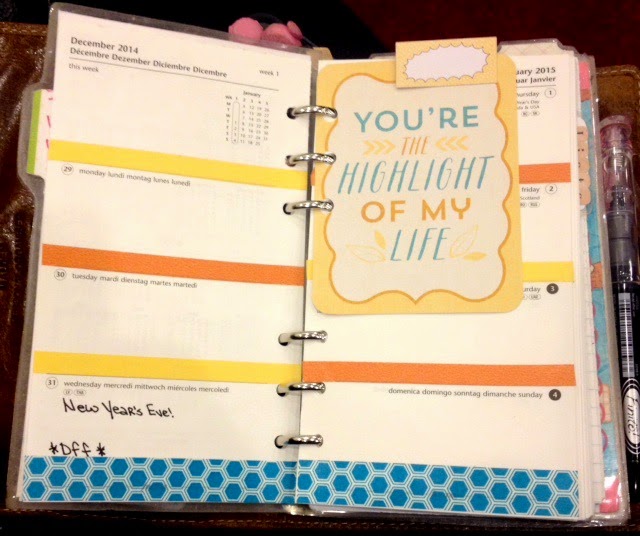 December 2014
Décembre Dezember Diciembre Dicembre
week 1
this week
January
29 monday lundi montag lunes lunedì
30 tuesday mardi dienstag martes martedì
31 wednesday mercredi mittwoch miércoles mercoledì
New Year's Eve!
*Dff*
YOU'RE
THE
HIGHLIGHT
OF MY
LIFE
uary 2015
uar Janvier
hursday 1
friday 2
Scotland
urday 3
domenica domingo sonntag dimanche sunday 4